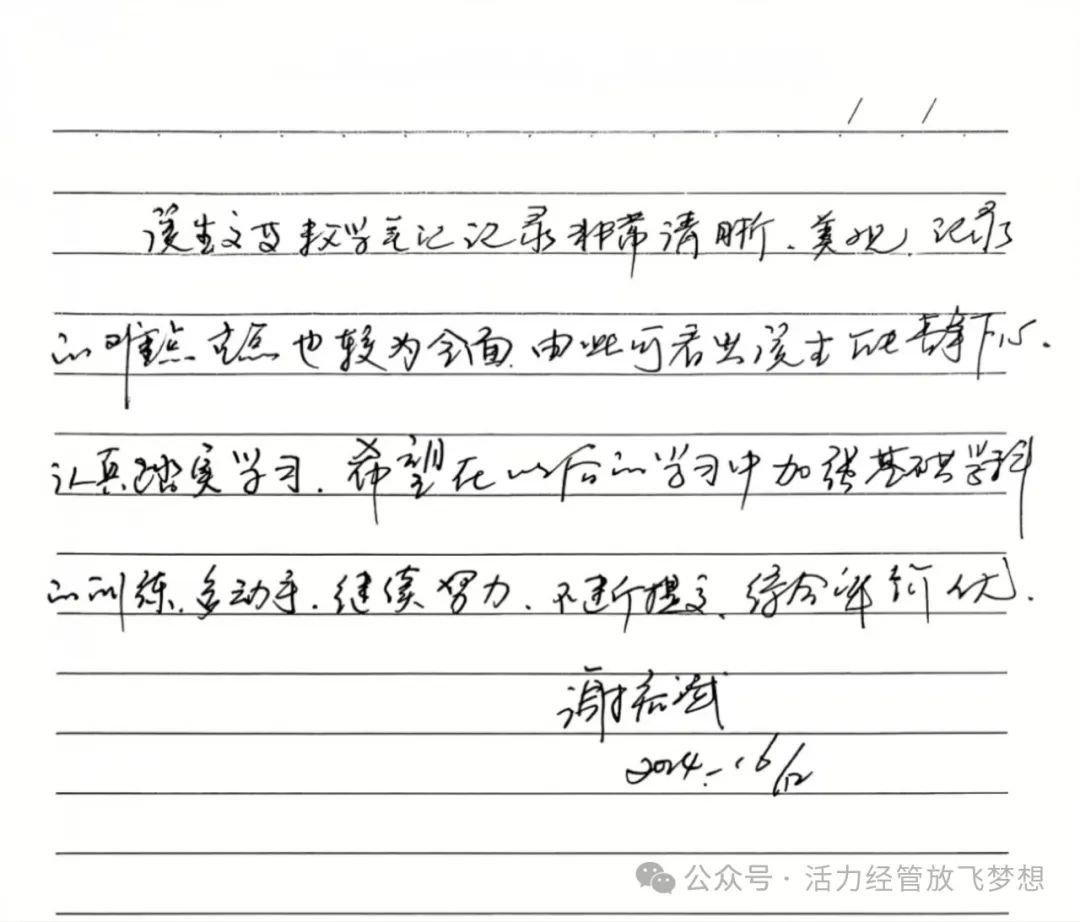 该生文段教学笔记记录非常清晰、美观,记录
的难点、克点也较为全面,由此可看出该生能静下心、
认真踏实学习,希望在以后的学习中加强基础学科
的训练,多动手,继续努力,不断提高,综合评价优.
谢
2024.16/12
公众号·活力经管放飞梦想